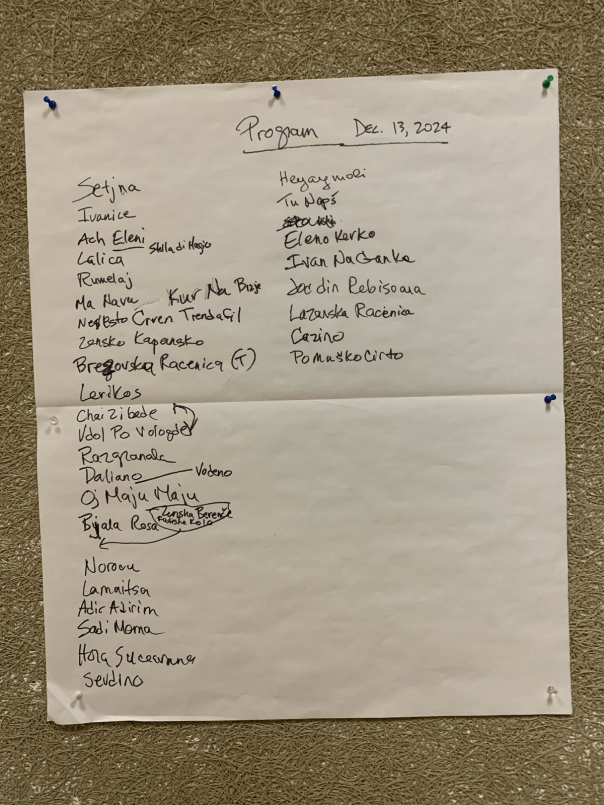 Program Dec. 13, 2024
Setjna
Ivanice
Ach Eleni Stella di Magio
Lalica
Rumelaj
Ma Navu Kur Na Braje
Crven Trendafil
Zensko Kapansko
Brezovska Racenica (T)
Lerikos
Chai Zibede
Vdol Po Vologde
Razgranala
Daliano Vodeno
Oj Maju Maju
Bijala Rosa Zenska Berenče
Kolo
Norocu
Lamnitsa
Adir Adirim
Sadi Moma
Hora Suceavina
Sevdino
Heyaymoli
Tu Napš
Eleno Kerko
Ivan Na Danka
Joc din Rebisoara
Lazarska Racenica
Cazino
Pomaško Cirto